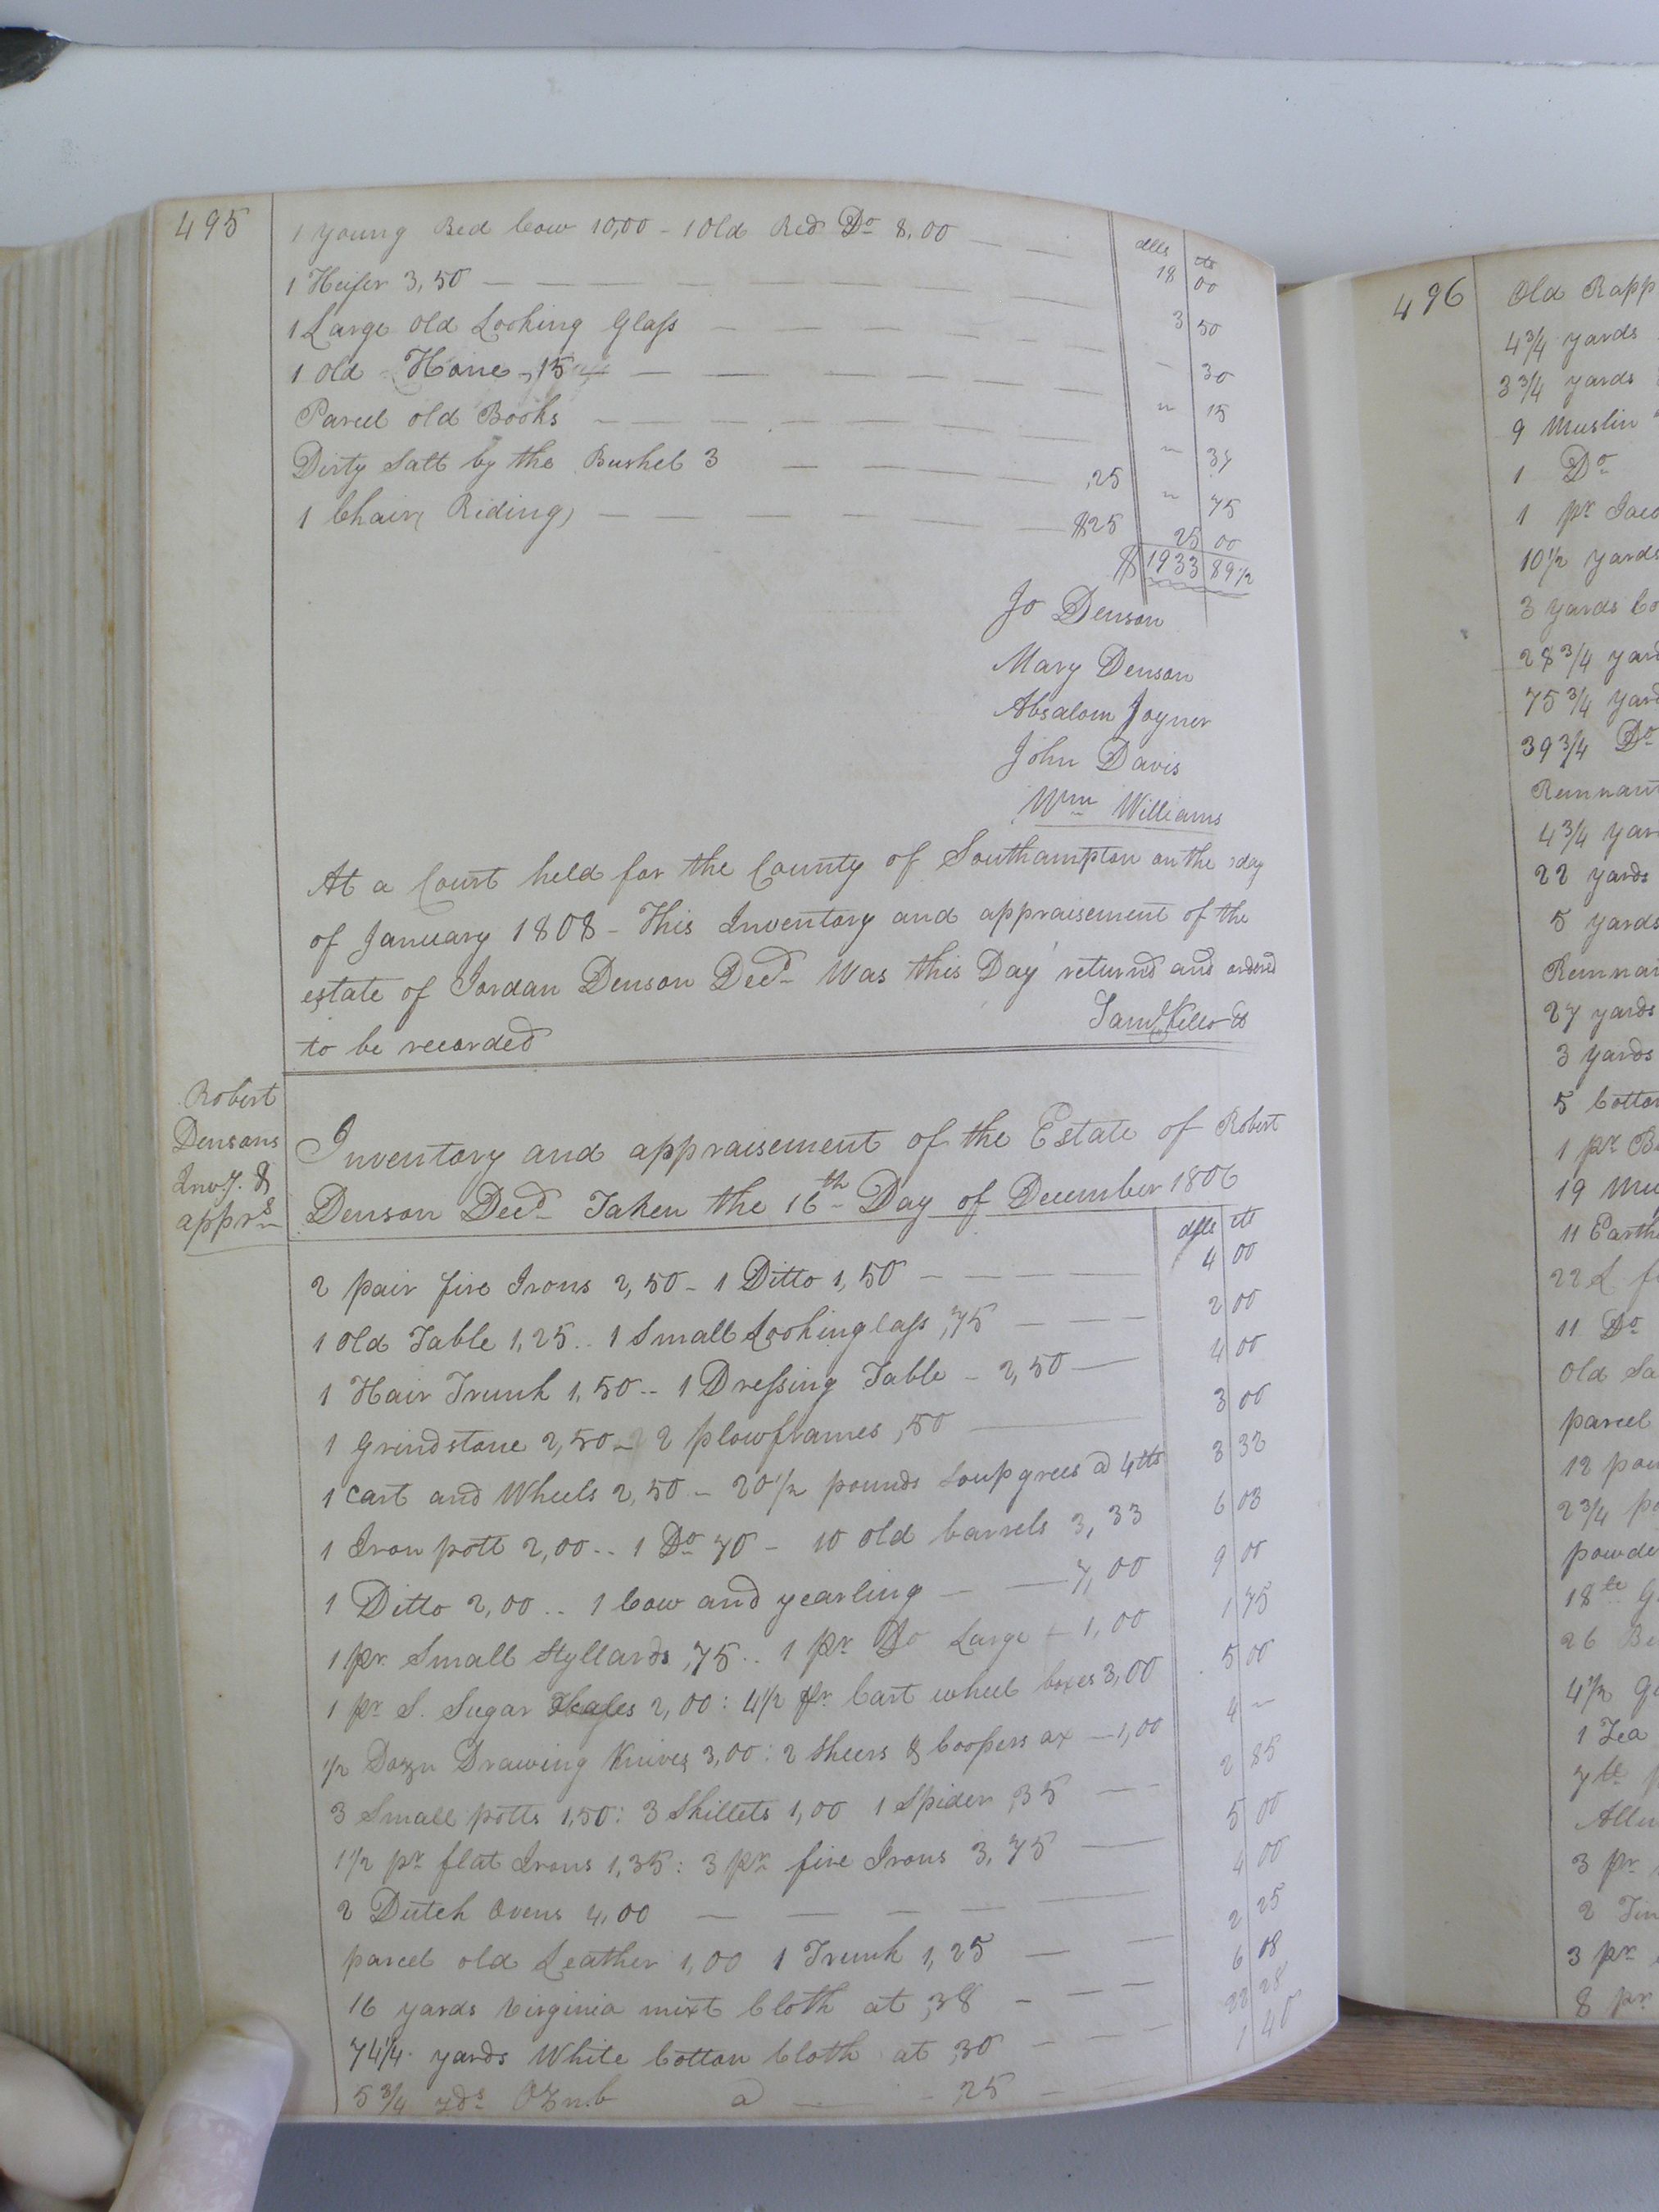 495
1 young Red Cow 10,00 - 1 Old Red Do 8,00 — — dlls cts 18 00
1 Heifer 3,50 — — — — 3 50
1 Large old Looking Glass — — — — " 30
1 Old Hone ,15 — — — — " 15
Parcel old Books — — — — " 37
Dirty Salt by the Bushel 3 — — — ,25 " 75
1 Chair (Riding) — — — — $25 25 00
$ 1933 89 1/2
Jo Denson
Mary Denson
Absalom Joyner
John Davis
Wm Williams
At a Court held for the County of Southampton on the day
of January 1808 - This Inventory and appraisement of the
estate of Jordan Denson Decd Was this Day returnd and orderd
to be recorded
Saml Kello
Robert
Densons
Invy. &
apprs
Inventory and appraisement of the Estate of Robert
Denson Decd Taken the 16th Day of December 1806
dlls cts
2 pair fire Irons 2,50 - 1 Ditto 1,50 — — — 4 00
1 Old Table 1,25 .. 1 Small Lookinglass ,75 — — — 2 00
1 Hair Trunk 1,50 - 1 Dressing Table - 2,50 — 4 00
1 Grindstone 2,50 - 2 plowframes ,50 — 3 00
1 Cart and Wheels 2,50 - 20 1/2 pounds a 4 cts 3 32
1 Iron pott 2,00 .. 1 Do 70 - 10 old barrels 3,33 6 03
1 Ditto 2,00 .. 1 Cow and yearling — — 7,00 9 00
1 pr Small Styllards ,75 .. 1 pr Do Large - 1,00 1 75
1 pr S. Sugar 2,00 : 4 1/2 pr Cart wheel boxes 3,00 5 00
1/2 Dozn Drawing Knives 3,00 : 2 Sheers & Coopers ax — 1,00 4 "
3 Small potts 1,50 : 3 Skillets 1,00 1 Spider ,35 — 2 85
1 1/2 pr flat Irons 1,35 : 3 pr fire Irons 3,75 — 5 00
2 Dutch Ovens 4,00 — — — — 4 00
parcel old Leather 1,00 1 Trunk 1,25 — — 2 25
16 yards Virginia mixt Cloth at ,38 - — — 6 08
74 1/4 yards White Cotton Cloth at ,30 - — — 22 28
5 3/4 yds Oznb a — ,25 — — 1 40
496
Old
4 3/4 yards
3 3/4 yards
9 Muslin
1 Do
1 pr
10 1/2 yards
3 yards
28 3/4
75 3/4
39 3/4 Do
4 3/4
22 yards
5 yards
27 yards
3 yards
5
1 pr
19
11
22
11 Do
Old
parcel
12
2 3/4
18
26
4 1/2
1 Tea
3 pr
2
3 pr
8 pr